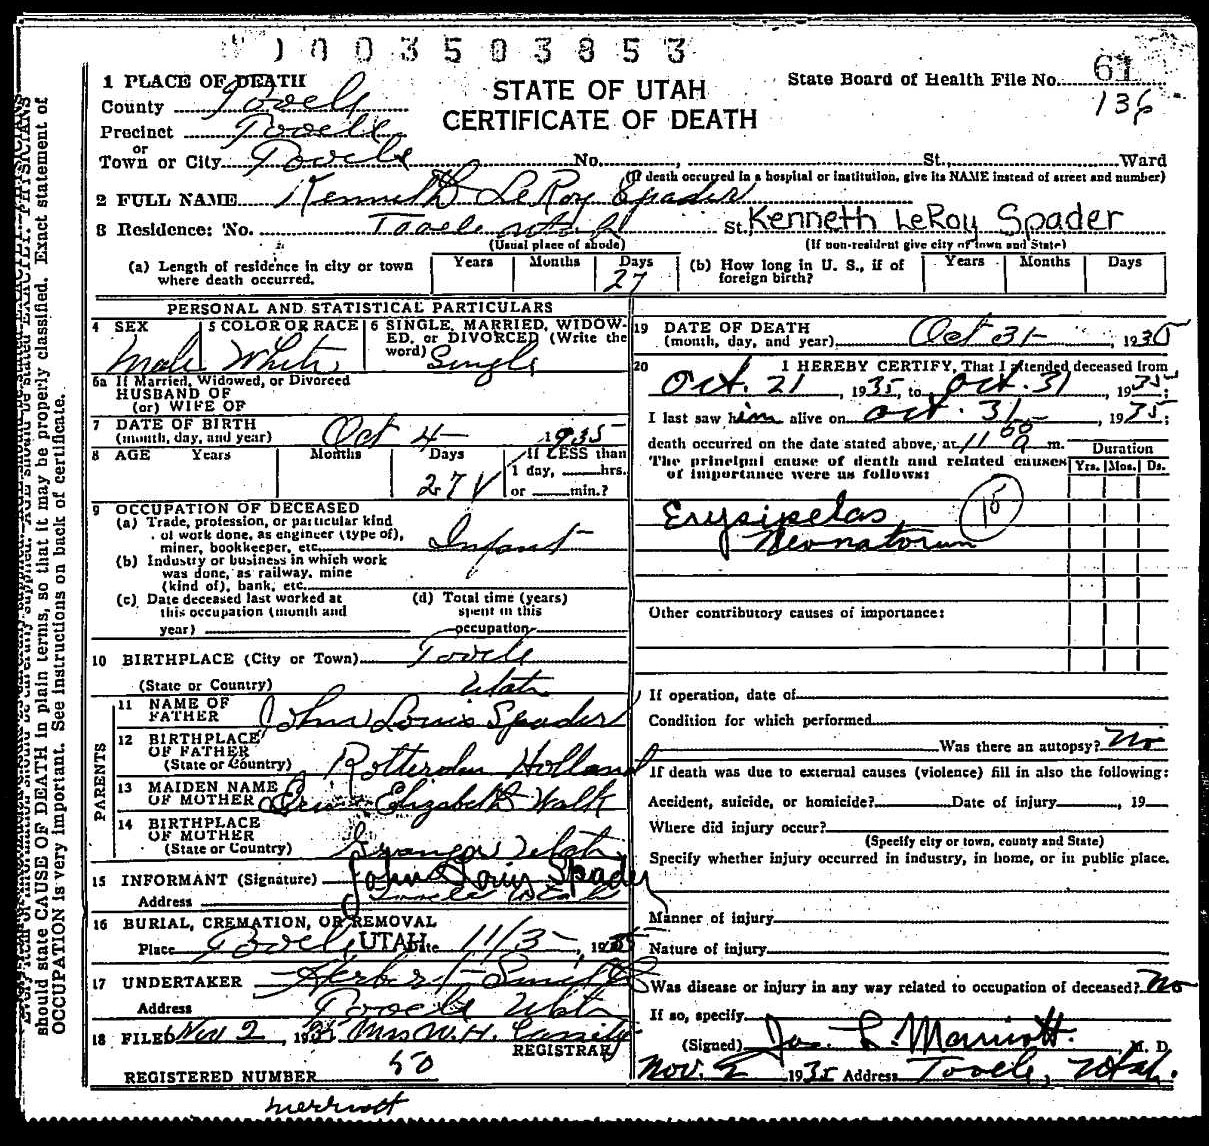 1003503853
1 PLACE OF DEATH
STATE OF UTAH
CERTIFICATE OF DEATH
State Board of Health File No. 61
136
County Tooele
Precinct Tooele
or
Town or City Tooele No. , St., Ward
(If death occurred in a hospital or institution, give its NAME instead of street and number)
2 FULL NAME Kenneth LeRoy Spader
Kenneth LeRoy Spader
3 Residence: No. Tooele Utah St.
(Usual place of abode) (If non-resident give city or town and State)
(a) Length of residence in city or town where death occurred. Years Months Days 27
(b) How long in U. S., if of foreign birth? Years Months Days
PERSONAL AND STATISTICAL PARTICULARS
4 SEX Male
5 COLOR OR RACE White
6 SINGLE, MARRIED, WIDOWED, or DIVORCED (Write the word) Single
6a If Married, Widowed, or Divorced
HUSBAND OF
(or) WIFE OF
7 DATE OF BIRTH
(month, day, and year) Oct 4 1935
8 AGE Years Months Days 27
If LESS than
1 day, hrs.
or min.?
9 OCCUPATION OF DECEASED
(a) Trade, profession, or particular kind
of work done, as engineer (type of),
miner, bookkeeper, etc. Infant
(b) Industry or business in which work
was done, as railway, mine
(kind of), bank, etc.
(c) Date deceased last worked at
this occupation (month and
year)
(d) Total time (years)
spent in this
occupation
10 BIRTHPLACE (City or Town) Tooele
(State or Country) Utah
PARENTS
11 NAME OF
FATHER John Louis Spader
12 BIRTHPLACE
OF FATHER
(State or Country) Rotterdam Holland
13 MAIDEN NAME
OF MOTHER Elizabeth Walk
14 BIRTHPLACE
OF MOTHER
(State or Country) Utah
15 INFORMANT (Signature) John Louis Spader
Address Tooele Utah
16 BURIAL, CREMATION, OR REMOVAL
Place Tooele, UTAH Date 11/3 1935
17 UNDERTAKER Herbert Smith
Address Tooele Utah
18 FILED Nov 2, 1935 Mrs W. H. Cassity
REGISTRAR
REGISTERED NUMBER 50
merriott
19 DATE OF DEATH
(month, day, and year) Oct 31, 1935
20 I HEREBY CERTIFY, That I attended deceased from
Oct. 21, 1935, to Oct. 31, 1935;
I last saw him alive on Oct. 31, 1935;
death occurred on the date stated above, at 11 00 a m.
The principal cause of death and related causes
of importance were as follows:
Duration
Yrs. Mos. Ds.
Erysipelas 15
Neonatorum
Other contributory causes of importance:
If operation, date of
Condition for which performed
Was there an autopsy? No
If death was due to external causes (violence) fill in also the following:
Accident, suicide, or homicide? Date of injury , 19
Where did injury occur?
(Specify city or town, county and State)
Specify whether injury occurred in industry, in home, or in public place.
Manner of injury
Nature of injury
Was disease or injury in any way related to occupation of deceased? No
If so, specify
(Signed) Jos. L. Marriott. M. D.
Nov. 2 1935 Address Tooele, Utah.
should state CAUSE OF DEATH in plain terms, so that it may be properly classified. Exact statement of
OCCUPATION is very important. See instructions on back of certificate.